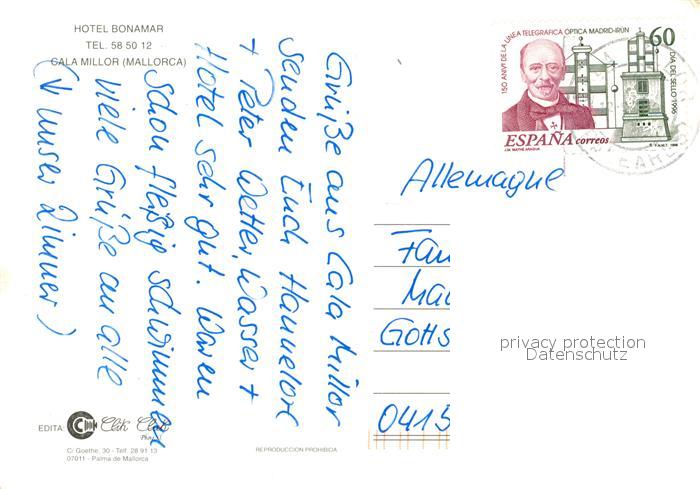 HOTEL BONAMAR
TEL. 58 50 12
CALA MILLOR (MALLORCA)
Grüße aus Cala Millor
senden Euch Hannelore
+ Peter. Wetter, Wasser +
Hotel sehr gut. Waren
schon fleißig schwimmen
Viele Grüße an alle
(↓ unser Zimmer)
150 ANIVº DE LA LINEA TELEGRÁFICA ÓPTICA MADRID-IRÚN
60
DIA DEL SELLO 1996
ESPAÑA correos
J.M. MATHE ARAGUA
F.N.M.T. 1996
Allemagne
Fam
Mar
Gotts
0415
privacy protection
Datenschutz
EDITA:
Clik Clak
Photo
C/ Goethe, 30 - Telf. 28 91 13
07011 - Palma de Mallorca
REPRODUCCION PROHIBIDA